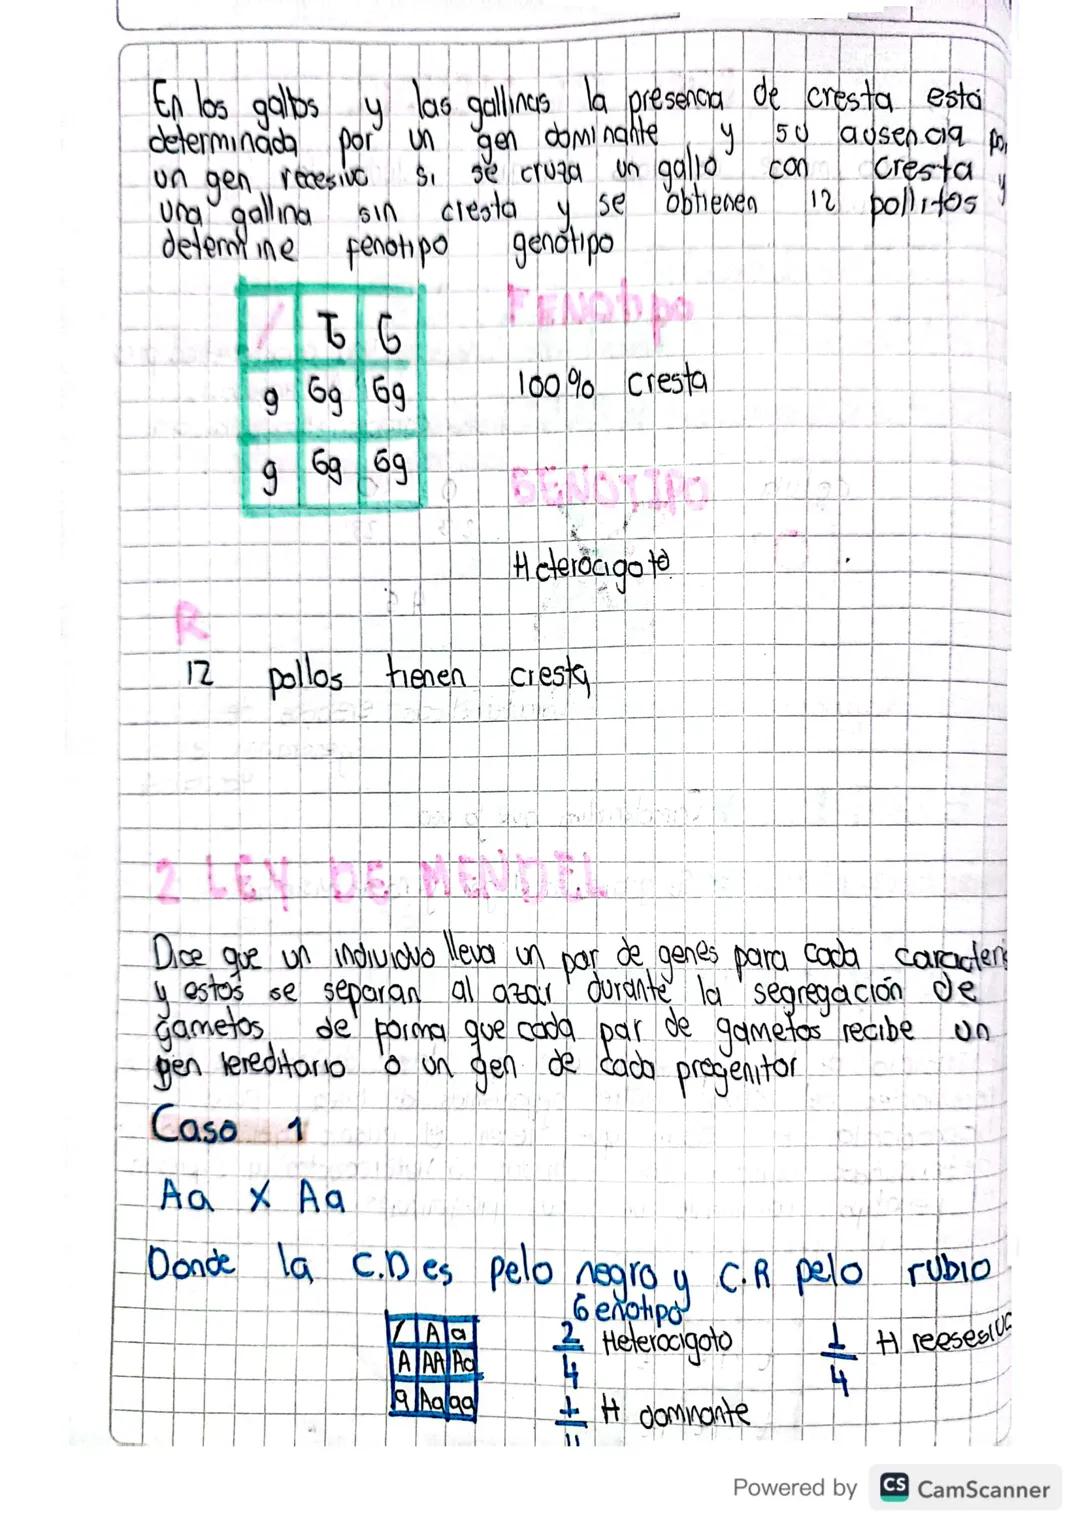 En los gallos y las gallinas la presencia de cresta está
determinada por un gen dominante y su ausencia por
un gen recesivo si se cruza un gallo con cresta y
una gallina sin cresta y se obtienen 12 pollitos
determine fenotipo genotipo
/ G G
g Gg Gg
g Gg Gg
FENOtipo
100% cresta
GENOTIPO
Heterocigoto
R
12 pollos tienen cresta
2 LEY DE MENDEL
Dice que un individuo lleva un par de genes para cada caracteris
y estos se separan al azar durante la segregación de
gametos de forma que cada par de gametos recibe un
gen hereditario o un gen de cada progenitor
Caso 1
Aa X Aa
Donde la C.D es pelo negro y C.R pelo rubio
Genotipo
/ A a
A AA Aa
a Aa aa
2/4 Heterocigoto
1/4 H resesivo
1/4 H dominante
Powered by CS CamScanner